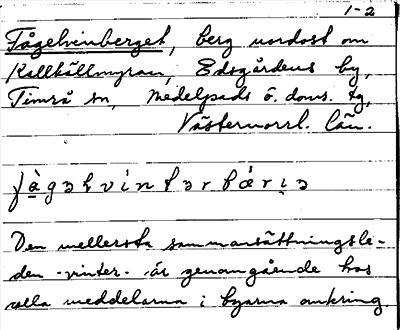 1-2
Fågelvinberget, berg nordost om
Kallkällmyran, Edsgårdens by,
Timrå sn, Medelpads ö. doms. tg,
Västernorrl. län.
fàgəlvíntərbǽrı̣ə
Den mellersta sammansättningsle-
den -vinter- är genomgående hos
alla meddelarna i byarna omkring